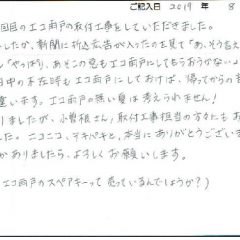 ご記入日 2019 年 8
回目のエコ雨戸の取付工事をしていただきました。
したが、新聞に折込広告が入ったのを見て「あ、そう言え
「やっぱり、あそこの窓もエコ雨戸にしてもらおうかない」よ
日中の不在時もエコ雨戸にしておけば、帰ってからの
違います。エコ雨戸の無い夏は考えられません!
りましたが、小曽根さん、取付工事担当の方々にもあ
した。ニコニコ、テキパキと、本当にありがとうござい
がありましたら、よろしくお願いします。
エコ雨戸のスペアキーって売っているんでしょうか?)